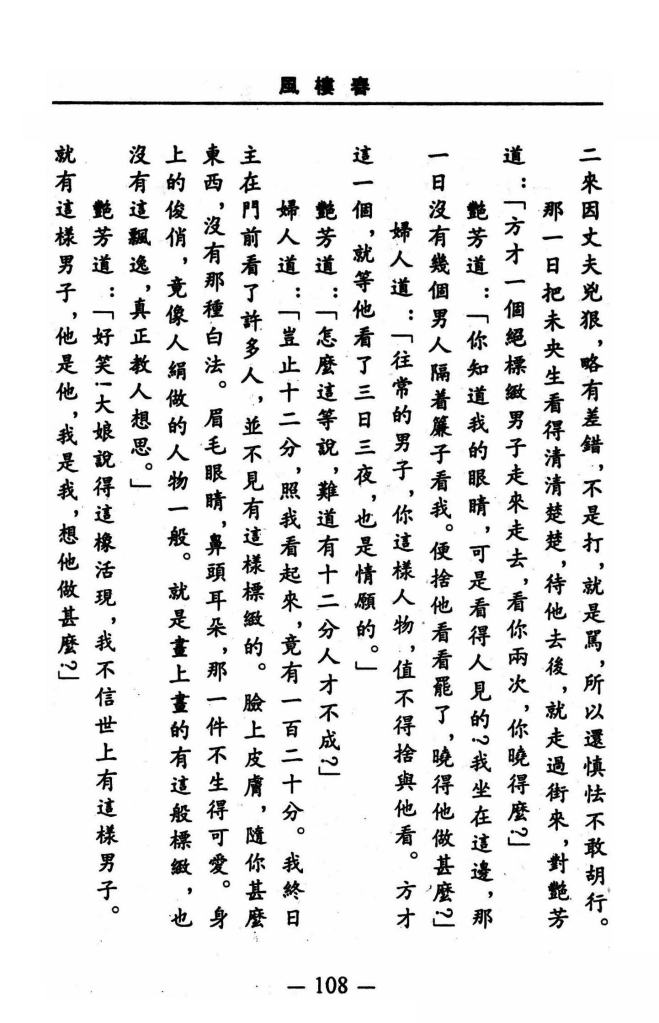 風樓春
二來因丈夫兇狠，略有差錯，不是打，就是罵，所以還慎怯不敢胡行。
那一日把未央生看得清清楚楚，待他去後，就走過街來，對艷芳
道：「方才一個絕標緻男子走來走去，看你兩次，你曉得麼？」
艷芳道：「你知道我的眼睛，可是看得人見的？我坐在這邊，那
一日沒有幾個男人隔着簾子看我。便捨他看看罷了，曉得他做甚麼？」
婦人道：「往常的男子，你這樣人物，值不得捨與他看。方才
這一個，就等他看了三日三夜，也是情願的。」
艷芳道：「怎麼這等說，難道有十二分人才不成？」
婦人道：「豈止十二分，照我看起來，竟有一百二十分。我終日
主在門前看了許多人，並不見有這樣標緻的。臉上皮膚，隨你甚麼
東西，沒有那種白法。眉毛眼睛，鼻頭耳朵，那一件不生得可愛。身
上的俊俏，竟像人絹做的人物一般。就是畫上畫的有這般標緻，也
沒有這飄逸，真正教人想思。」
艷芳道：「好笑！大娘說得這橡活現，我不信世上有這樣男子。
就有這樣男子，他是他，我是我，想他做甚麼？」
— 108 —